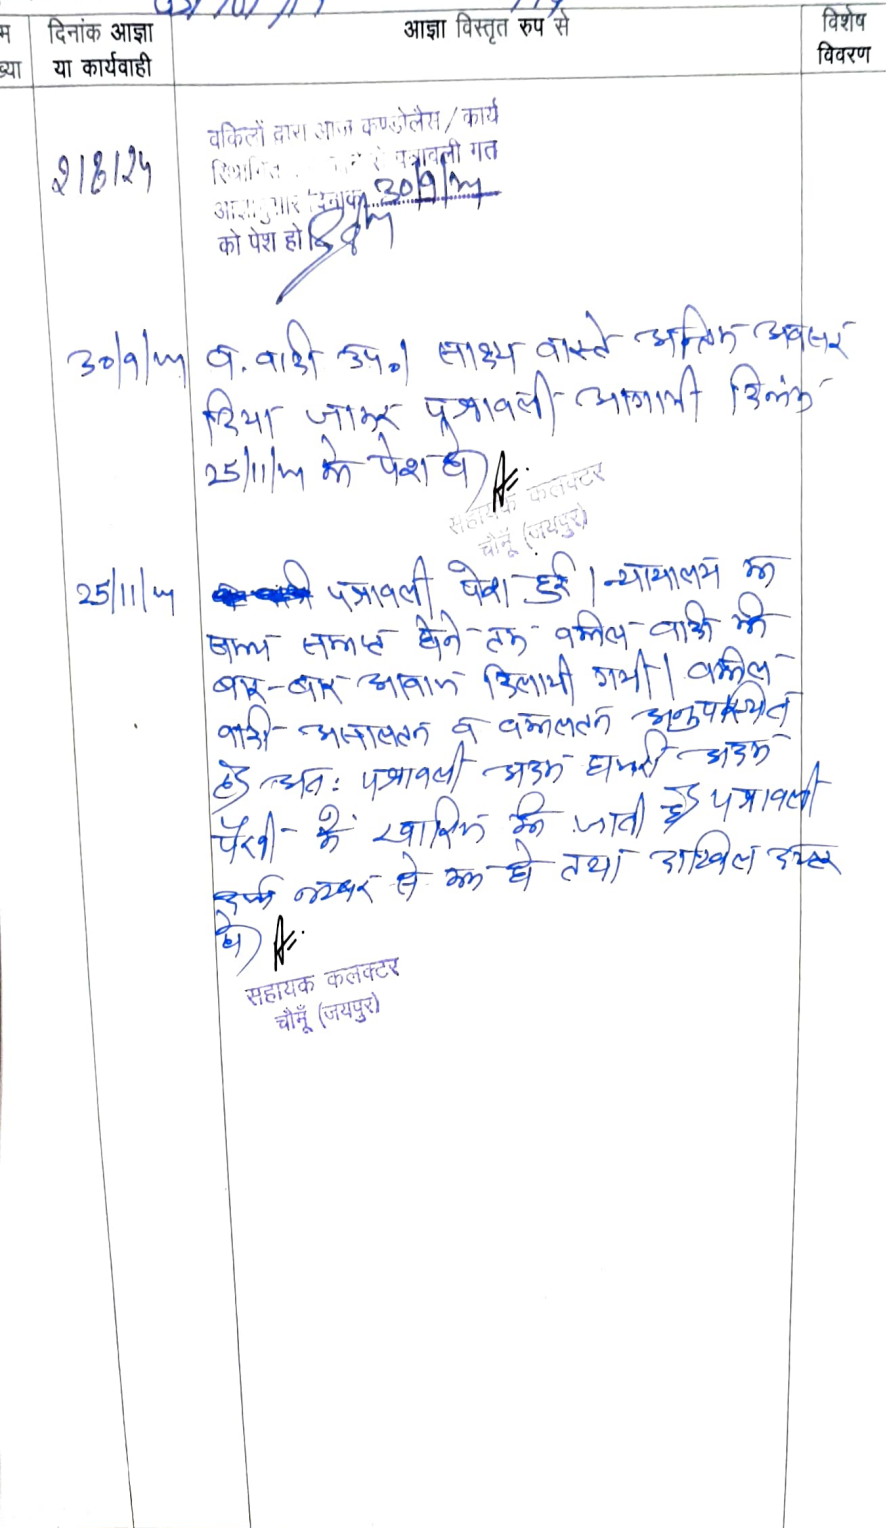 दिनांक आज्ञा या कार्यवाही
आज्ञा विस्तृत रुप से
विशेष विवरण
2/8/24
वकिलों द्वारा आज कण्डोलैंस/कार्य
स्थगित पत्रावली गत
आज्ञानुसार दिनांक 30/9/24
को पेश हो
30/9/24
व. वादी उप०। साक्ष्य वास्ते अन्तिम अवसर
दिया जाकर पत्रावली आगामी दिनांक
25/11/24 को पेश हो
सहायक कलक्टर
चौमूँ (जयपुर)
25/11/24
पत्रावली पेश हुई। न्यायालय का
समय समाप्त होने तक वकील वादी को
बार-बार आवाज दिलायी गयी। वकील
वादी असालतन व वकालतन अनुपस्थित
है अतः पत्रावली अदम हाजरी अदम
पैरवी में खारिज की जाती है पत्रावली
नम्बर से कम हो तथा दाखिल दफ्तर
हो
सहायक कलक्टर
चौमूँ (जयपुर)